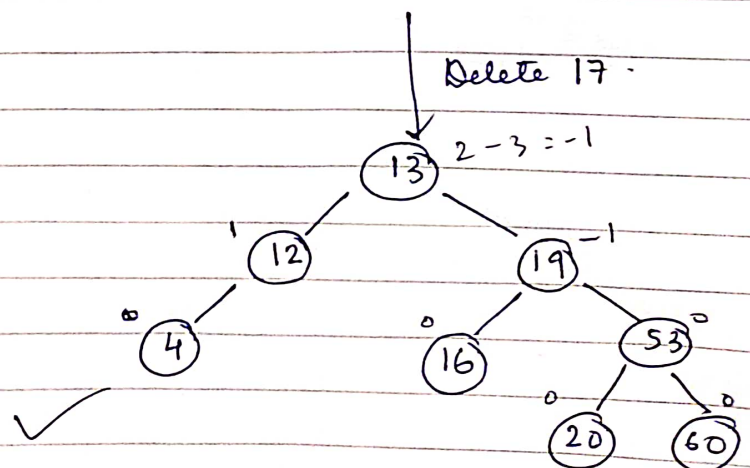 Delete 17.
13 2 - 3 = -1
1 12 19 -1
0 4 0 16 53 0
0 20 60 0